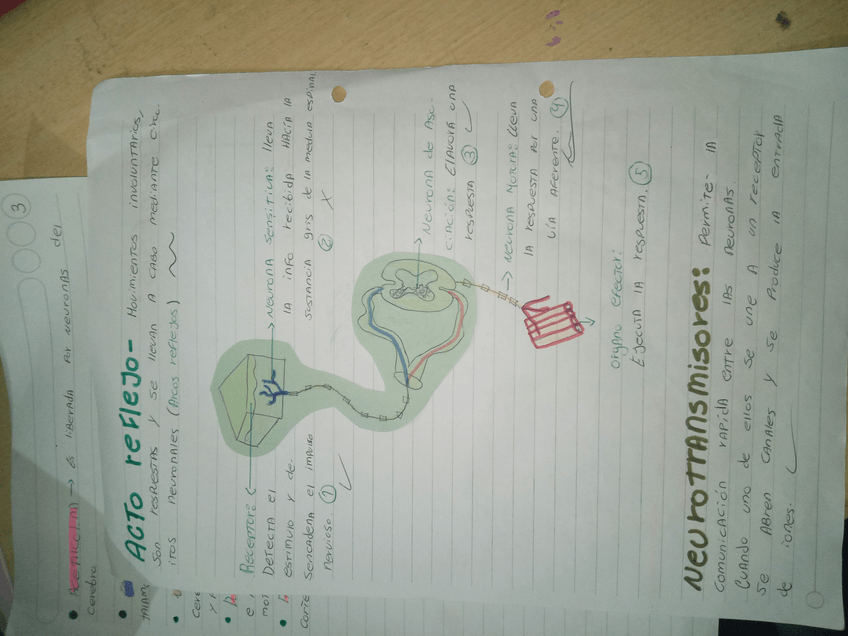 3
• Acetilcolina → es liberada por neuronas del
cerebro
ACTO reflejo- Movimientos involuntarios,
son respuestas y se llevan a cabo mediante circ
itos neuronales (Arcos reflejos)
Receptor:
Detecta el
estimulo y de.
sencadena el impulso
nervioso. ①
→ Neurona sensitiva: lleva
la info recibida hacia la
sustancia gris de la medula espinal
②
→ Neurona de Aso.
ciación: Elavora una
respuesta ③
→ Neurona motora: lleva
la respuesta por una
vía aferente. ④
organo efector:
Ejecuta la respuesta. ⑤
Neurotransmisores: Permite- la
comunicación rapida entre las neuronas
Cuando uno de ellos se une a un receptor
se abren canales y se produce la entrada
de iones.